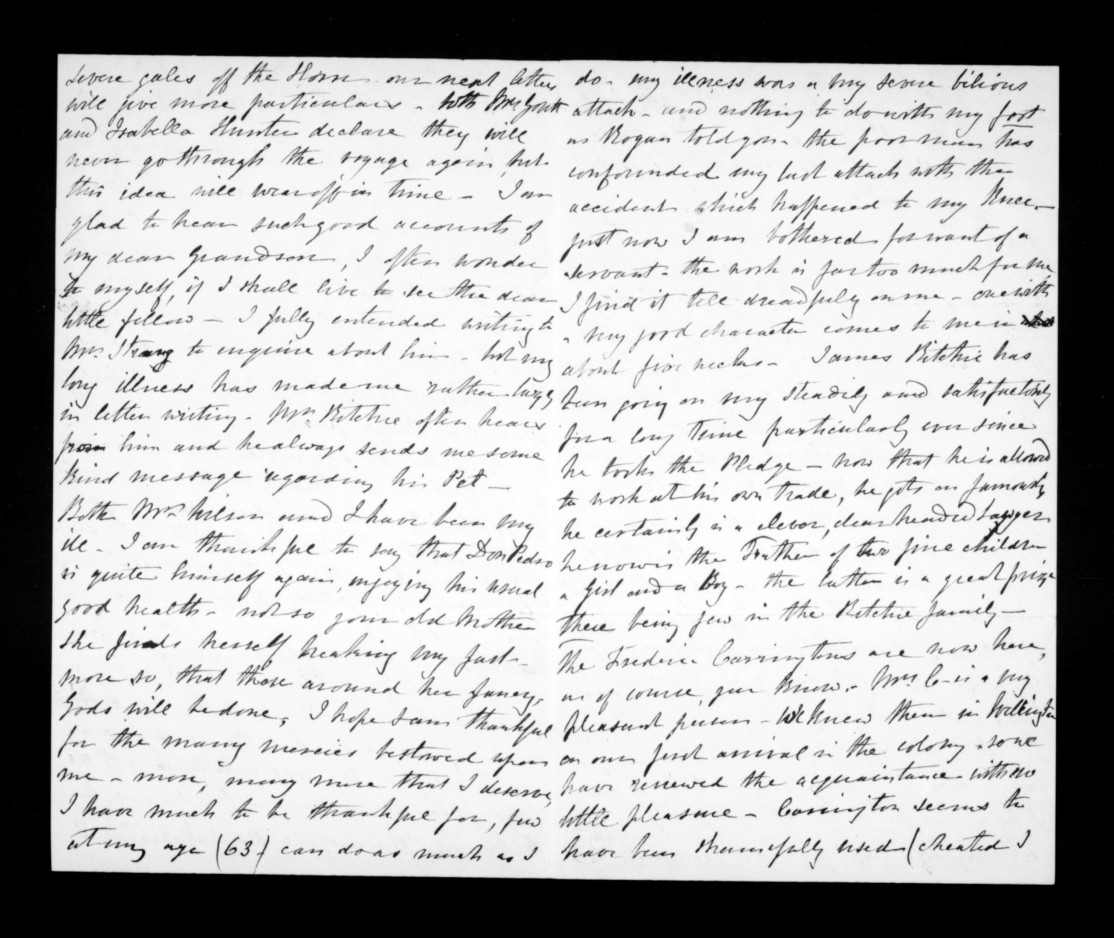 severe gales off the Horn our next letters
will give more particulars - both Mrs
and Isabella Hunter declare they will
never go through the voyage again, but
this idea will wear off in time - I am
glad to hear such good accounts of
my dear Grandson, I often wonder
to myself, if I shall live to see the dear
little fellow - I fully intended writing to
Mrs Strang to enquire about him - but my
long illness has made me rather lazy
in letter writing - Mrs Ritchie often hears
from him and he always sends me some
kind message regarding his Pet -
Both Mrs Wilson and I have been very
ill - I am thankful to say that Don Pedro
is quite himself again, enjoying his usual
good health - not so your old Mother
She finds herself breaking very fast -
more so, that those around her fancy,
Gods will be done, I hope I am thankful
for the many mercies bestowed upon
me - more, many more that I deserve,
I have much to be thankful for, few
at my age (63) can do as much as I
do - my illness was a very severe bilious
attack - and nothing to do with my foot
as Rogan told you - the poor man has
confounded my last attack with the
accident which happened to my Knee -
just now I am bothered for want of a
servant - the work is far too much for me
I find it tell dreadfully on me - one with
a very good character comes to me in
about five weeks - James Ritchie has
been going on very steadily and satisfactorily
for a long time particularly ever since
he took the Pledge - now that he is allowed
to work at his own trade, he gets on famously
he certainly is a clever, clear headed Lawyer
he now is the Father of two fine children
a Girl and a Boy - the latter is a great prize
there being few in the Ritchie family -
the Frederic Carringtons are now here,
as of course you know - Mrs C- is a very
pleasant person - We knew them in Wellington
on our first arrival in the colony, so we
have renewed the acquaintance with no
little pleasure - Carrington seems to
have been shamefully used (cheated I